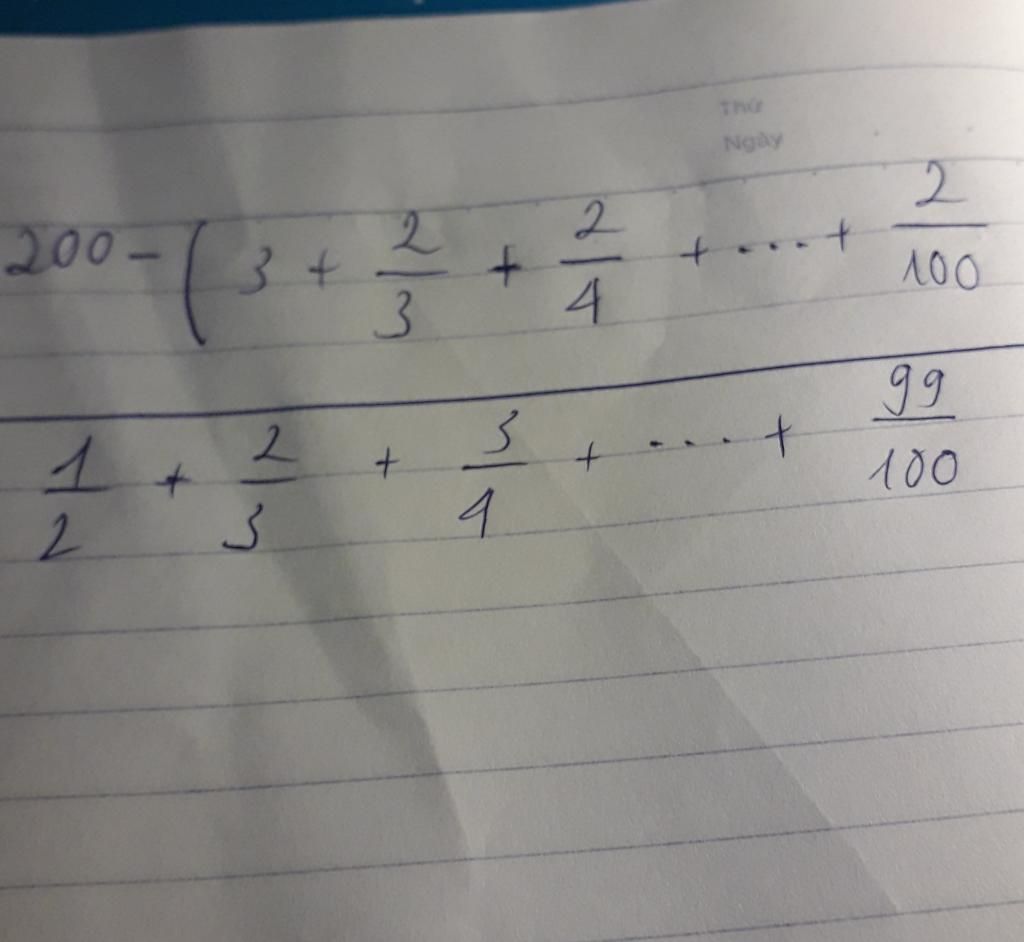 Thứ
Ngày
200 - ( 3 + 2/3 + 2/4 + .... + 2/100
1/2 + 2/3 + 3/4 + .... + 99/100